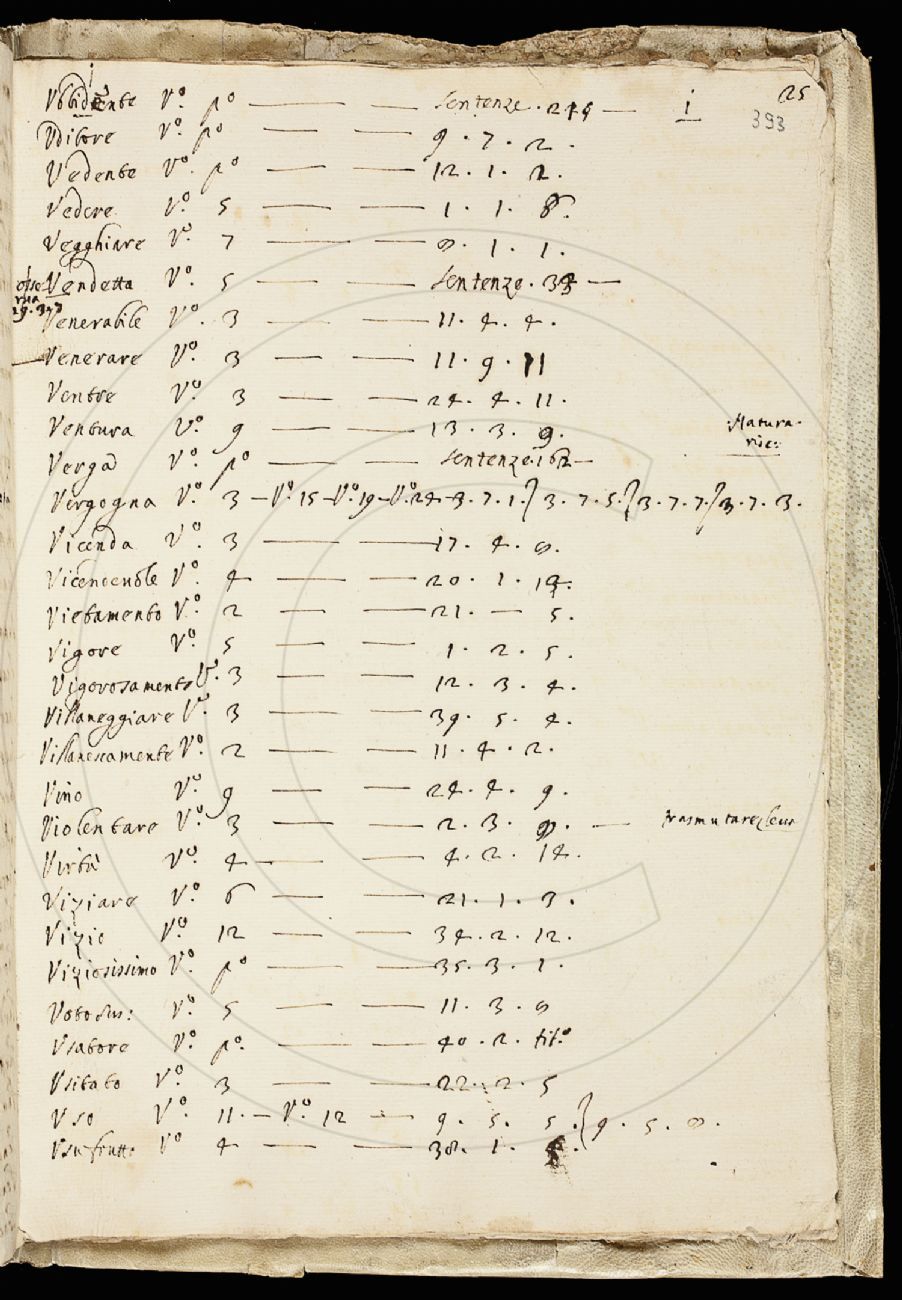 25
393
Vbbidente Vº pº — — Sentenze. 245 — i
Vditore Vº. pº — — 9. 7. 2.
Vedente Vº. pº — — 12. 1. 2.
Vedere Vº. 5 — — 1. 1. 8.
Vegghiare Vº. 7 — — 8. 1. 1.
Vendetta Vº. 5 — — Sentenze. 33 —
Venerabile Vº. 3 — — 11. 4. 4.
Venerare Vº. 3 — — 11. 9. 11
Ventre Vº. 3 — — 24. 4. 11.
Ventura Vº. 9 — — 13. 3. 9.
Verga Vº. pº — — Sentenze. 162 —
Vergogna Vº. 3 — Vº. 15 — Vº. 19 — Vº. 24 — 3. 7. 1.} 3. 7. 5.} 3. 7. 7.} 3. 7. 3.
Vicenda Vº. 3 — — 17. 4. 8.
Vicencevole Vº. 4 — — 20. 1. 14.
Vietamento Vº. 2 — — 21. — 5.
Vigore Vº. 5 — — 1. 2. 5.
Vigorosamente Vº. 3 — — 12. 3. 4.
Villaneggiare Vº. 3 — — 39. 5. 4.
Villanescamente Vº. 2 — — 11. 4. 2.
Vino Vº. 9 — — 24. 4. 9.
Violentare Vº. 3 — — 2. 3. 8. —
Virtù Vº. 4 — — 4. 2. 14.
Viziare Vº. 6 — — 21. 1. 3.
Vizio Vº. 12 — — 34. 2. 12.
Viziosissimo Vº. pº — — 35. 3. 1.
Vº. 5 — — 11. 3. 8
Vsatore Vº. pº. — — 40. 2. titº.
Vsitato Vº. 3 — — 22. 2. 5
Vso Vº. 11. — Vº. 12 — 9. 5. 5.} 9. 5. 8.
Vsufrutto Vº 4 — — 38. 1.